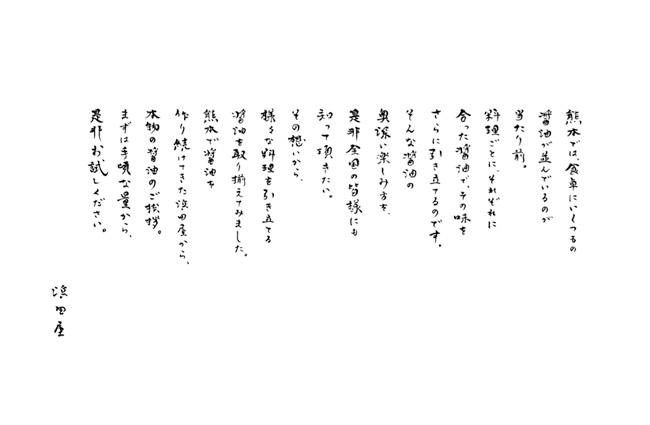 熊本では、食卓にいくつもの
醤油が並んでいるのが
当たり前。
料理ごとに、それぞれに
合った醤油で、その味を
さらに引き立てるのです。
そんな醤油の
奥深い楽しみ方を、
是非全国の皆様にも
知って頂きたい。
その想いから、
様々な料理を引き立てる
醤油を取り揃えてみました。
熊本で醤油を
作り続けてきた浜田屋から、
本物の醤油のご挨拶。
まずは手頃な量から、
是非お試しください。
浜田屋